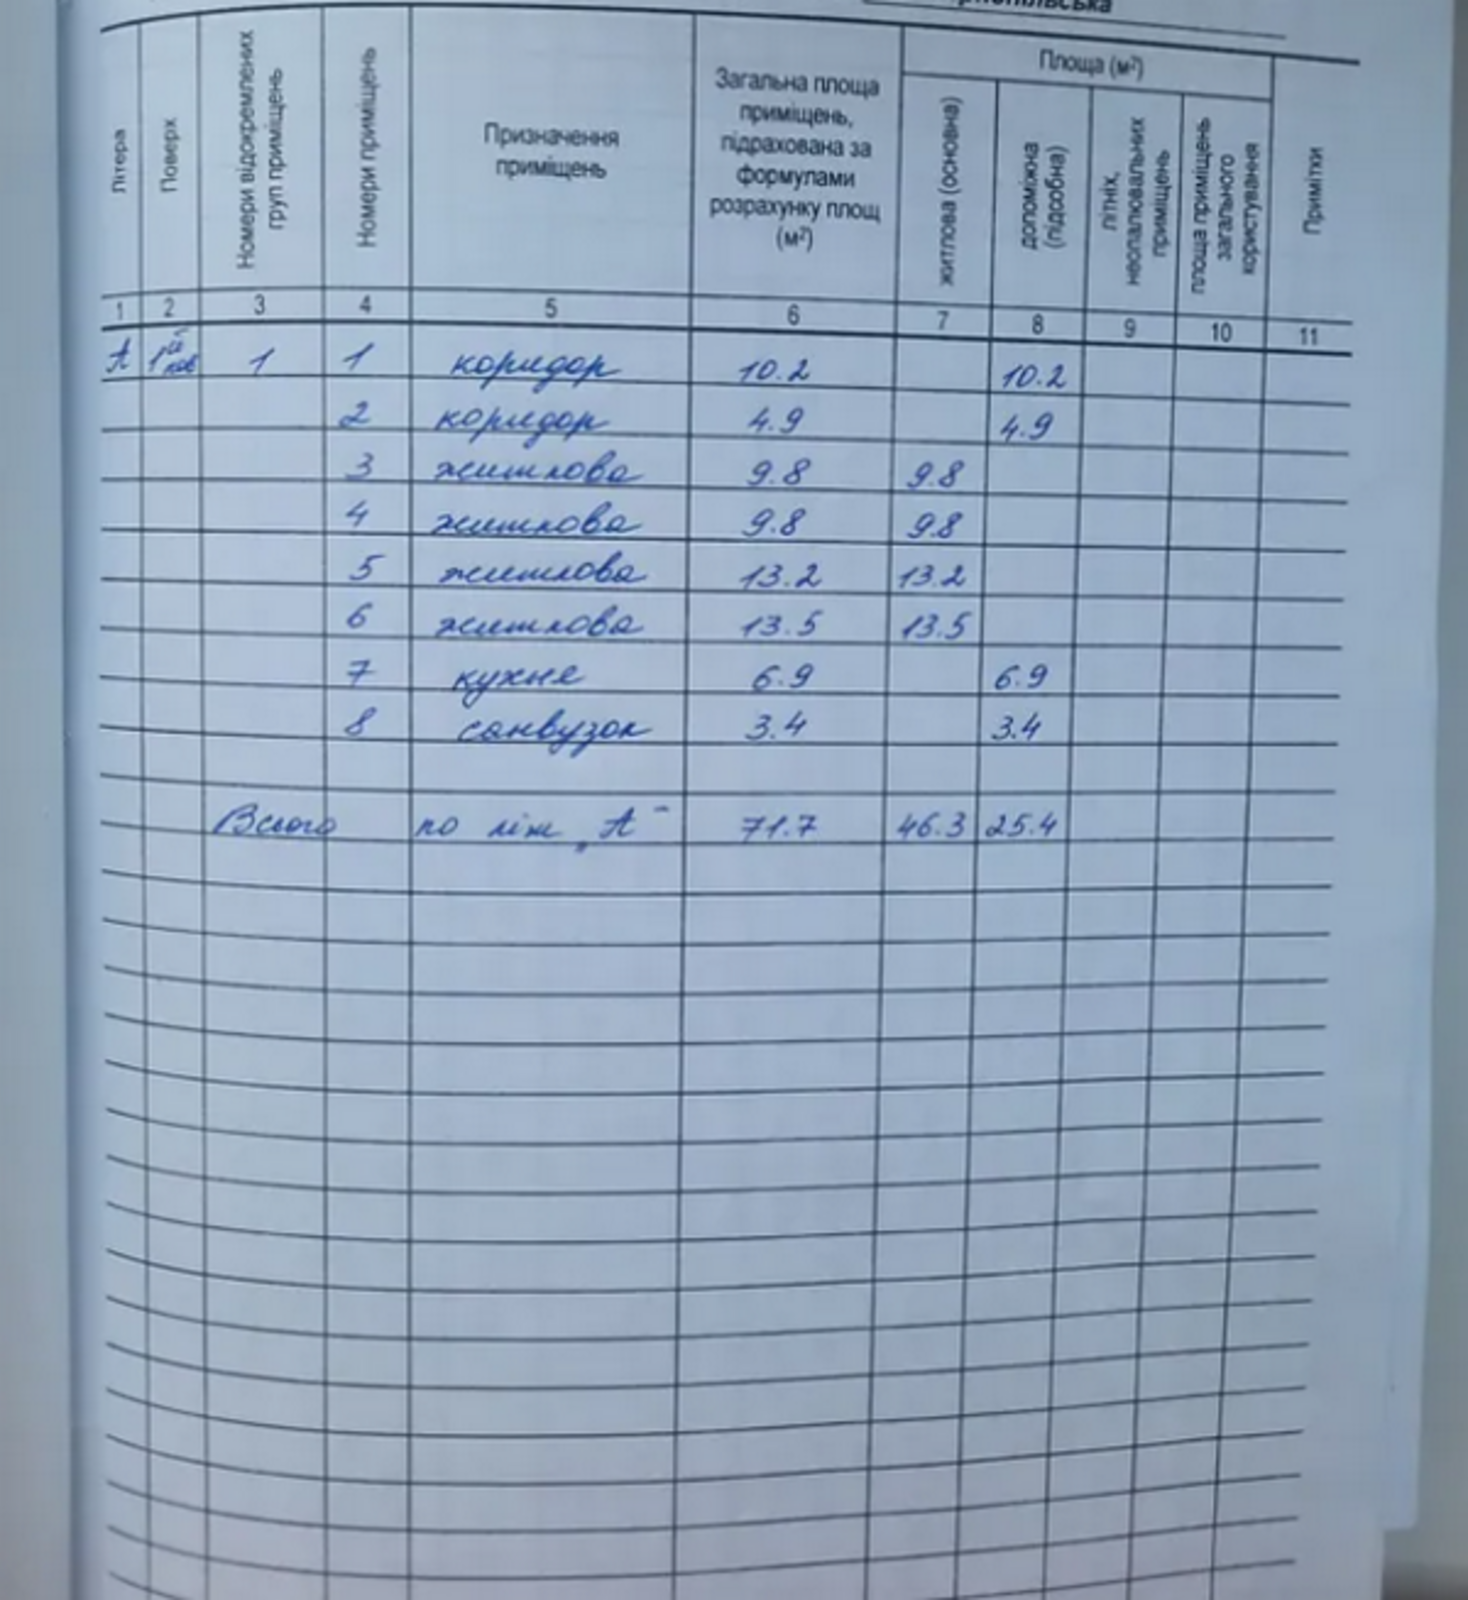 Площа (м²)
Літера
Поверх
Номери відокремлених
груп приміщень
Номери приміщень
Призначення
приміщень
Загальна площа
приміщень,
підрахована за
формулами
розрахунку площ
(м²)
житлова (основна)
допоміжна
(підсобна)
літніх,
неопалювальних
приміщень
площа приміщень
загального
користування
Примітки
1 2 3 4 5 6 7 8 9 10 11
А 1ий пов 1 1 коридор 10.2 10.2
2 коридор 4.9 4.9
3 житлова 9.8 9.8
4 житлова 9.8 9.8
5 житлова 13.2 13.2
6 житлова 13.5 13.5
7 кухня 6.9 6.9
8 санвузол 3.4 3.4
Всього по літ „А" 71.7 46.3 25.4